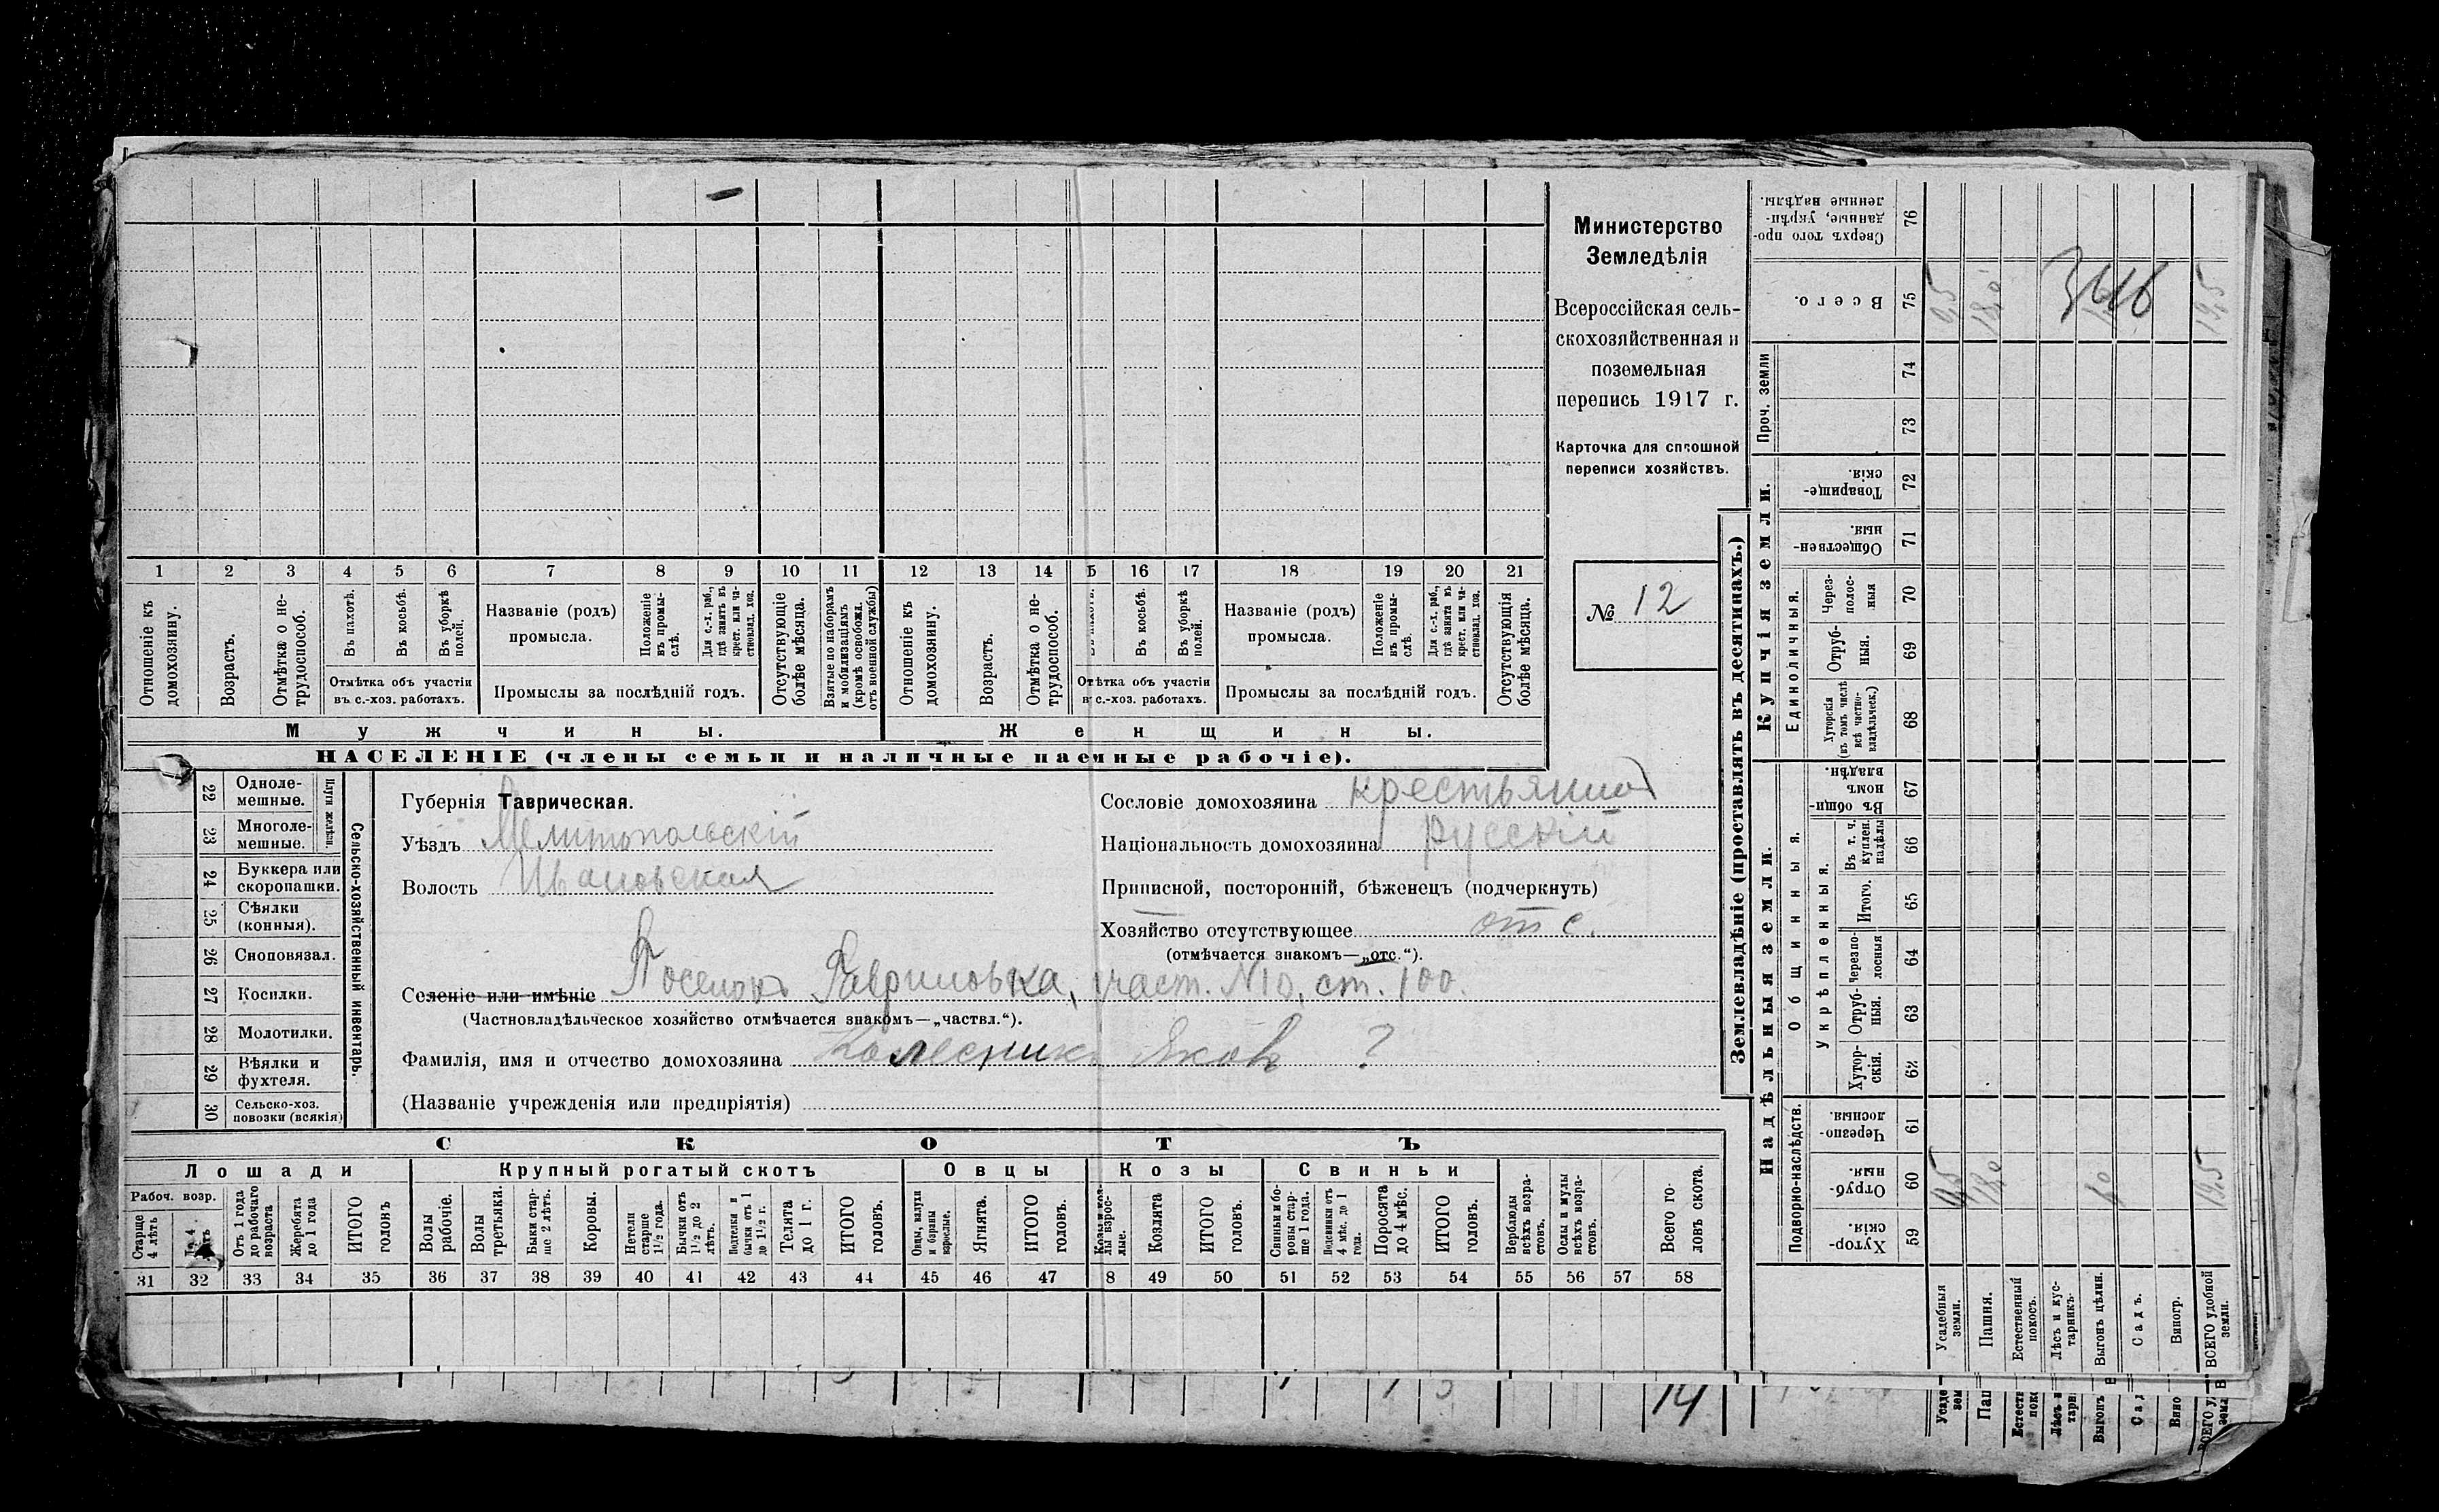 1 2 3 4 5 6 7 8 9 10 11 12 13 14 15 16 17 18 19 20 21
Отношеніе къ домохозяину.
Возрастъ.
Отмѣтка о не-
трудоспособ.
Въ пахотѣ.
Въ косьбѣ.
Въ уборкѣ полей.
Отмѣтка объ участіи
въ с.-хоз. работахъ.
Названіе (родъ)
промысла.
Положеніе въ промы-
слѣ.
Для с.-х. раб., гдѣ занятъ въ крест. или ча-
стновлад. хоз.
Промыслы за послѣдній годъ.
Отсутствующіе болѣе мѣсяца.
Взятые по наборамъ и мобилизаціямъ (кромѣ освобожд. отъ военной службы)
Отношеніе къ домохозяину.
Возрастъ.
Отмѣтка о не-
трудоспособ.
Въ косьбѣ.
Въ уборкѣ полей.
Отмѣтка объ участіи
въ с.-хоз. работахъ.
Названіе (родъ)
промысла.
Положеніе въ промы-
слѣ.
Для с.-х. раб., гдѣ занята въ крест. или ча-
стновлад. хоз.
Промыслы за послѣдній годъ.
Отсутствующія болѣе мѣсяца.
Мужчины.
Женщины.
НАСЕЛЕНІЕ (члены семьи и наличные наемные рабочіе).
Министерство
Земледѣлія
Всероссійская сель-
скохозяйственная и
поземельная
перепись 1917 г.
Карточка для сплошной
переписи хозяйствъ.
№ 12
22 Одноле-
мешные.
23 Многоле-
мешные.
Плуги желѣзн.
24 Буккера или
скоропашки.
25 Сѣялки
(конныя).
26 Сноповязал.
27 Косилки.
28 Молотилки.
29 Вѣялки и
фухтеля.
30 Сельско-хоз.
повозки (всякія)
Сельско-хозяйственный инвентарь.
Губернія Таврическая.
Уѣздъ Мелитопольскій
Волость Ивановская
Сословіе домохозяина крестьянинъ
Національность домохозяина русскій
Приписной, посторонній, бѣженецъ (подчеркнуть)
Хозяйство отсутствующее отс.
(отмѣчается знакомъ—„отс.“).
Селеніе или имѣніе Поселокъ Гавриловка, участ. №10, ст. 100.
(Частновладѣльческое хозяйство отмѣчается знакомъ—„частвл.“).
Фамилія, имя и отчество домохозяина Колесникъ Яковъ ?
(Названіе учрежденія или предпріятія)
СКОТЪ
Лошади
Крупный рогатый скотъ
Овцы
Козы
Свиньи
Рабоч. возр.
Старше 4 лѣтъ
До 4 лѣтъ
Отъ 1 года до рабочаго возраста
Жеребята до 1 года
ИТОГО головъ
Волы рабочіе.
Волы третьяки.
Быки стар-
ше 2 лѣтъ.
Коровы.
Нетели старше 1½ года.
Бычки отъ 1½ до 2 лѣтъ.
Подтелки и бычки отъ 1 до 1½ г.
Телята до 1 г.
ИТОГО головъ.
Овцы, валухи и бараны взрослые.
Ягнята.
ИТОГО головъ.
Козы и коз-
лы взрос-
лые.
Козлята
ИТОГО головъ.
Свиньи и бо-
ровы стар-
ше 1 года.
Подсвинки отъ 4 мѣс. до 1 года.
Поросята до 4 мѣс.
ИТОГО головъ.
Верблюды всѣхъ возра-
стовъ.
Ослы и мулы всѣхъ возра-
стовъ.
Всего го-
ловъ скота.
31 32 33 34 35 36 37 38 39 40 41 42 43 44 45 46 47 8 49 50 51 52 53 54 55 56 57 58
14
Землевладѣніе (проставлять въ десятинахъ.)
Сверхъ того про-
данные, укрѣп-
ленные надѣлы.
76
Всего.
75
Проч. земли
74
73
Купчія земли.
Товарище-
скія.
72
Обществен-
ныя.
71
Единоличныя.
Через-
полос-
ныя
70
Отруб-
ныя.
69
Хуторскія (въ томъ числѣ всѣ частно-
владѣльческ.)
68
Надѣльныя земли.
Общинныя.
Въ общи-
номъ
владѣн.
67
Укрѣпленныя.
Въ т. ч. куплен. надѣлы
66
Итого.
65
Черезпо-
лосныя
64
Отруб-
ныя.
63
Хутор-
скія.
62
Подворно-наслѣдств.
Черезпо-
лосныя.
61
Отруб-
ныя.
60
Хутор-
скія.
59
Усадебныя земли.
Пашня.
Естественный покосъ.
Лѣсъ и кус-
тарникъ.
Выгонъ цѣлин.
Садъ.
Виногр.
ВСЕГО удобной земли.